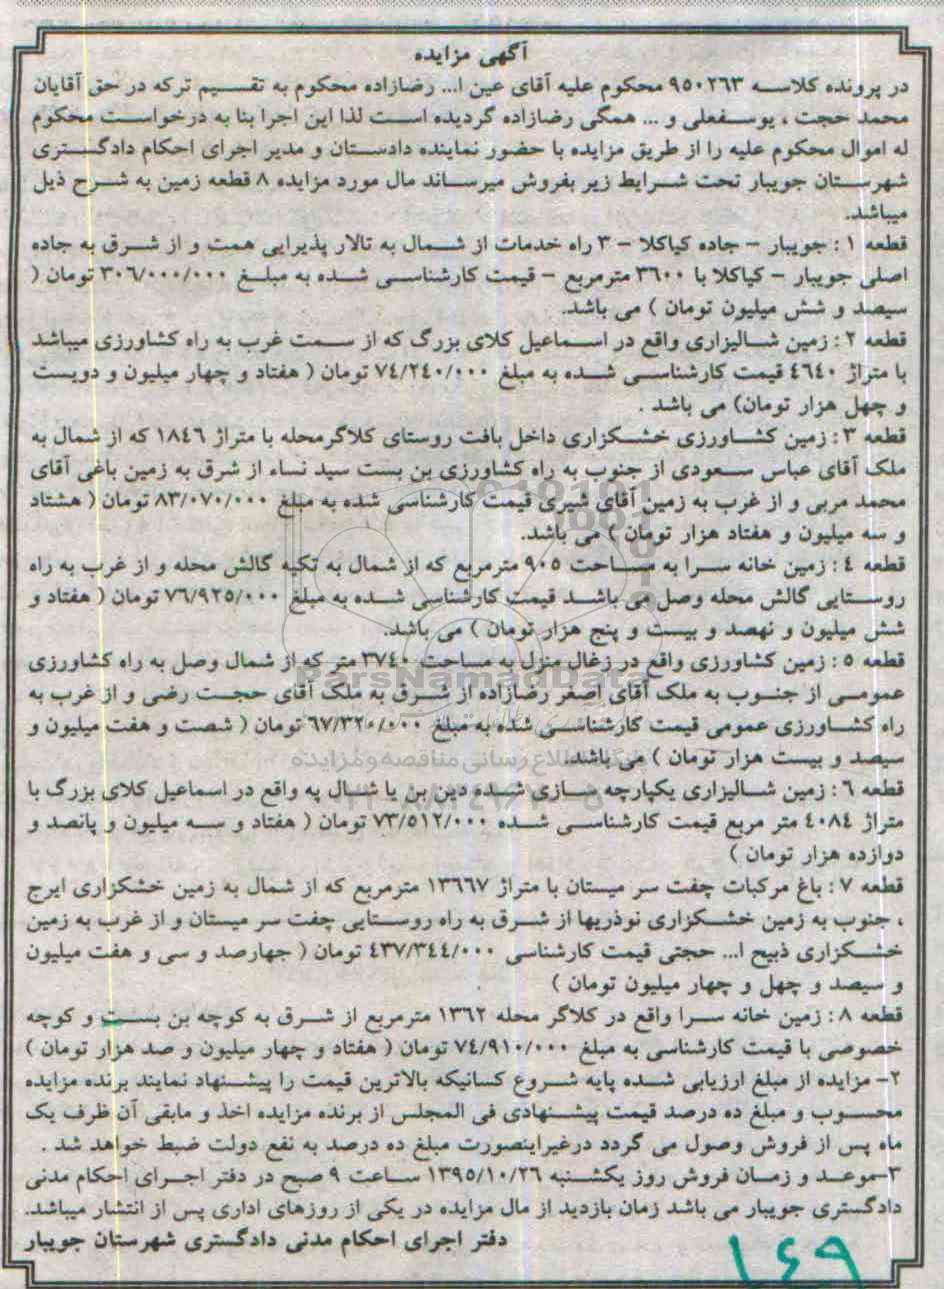 آگهی مزایده
در پرونده کلاسه ۹۵۰۲۶۳ محکوم علیه آقای عین ا... رضازاده محکوم به تقسیم ترکه در حق آقایان
محمد حجت ، یوسفعلی و ... همگی رضازاده گردیده است لذا این اجرا بنا به درخواست محکوم
له اموال محکوم علیه را از طریق مزایده با حضور نماینده دادستان و مدیر اجرای احکام دادگستری
شهرستان جویبار تحت شرایط زیر بفروش میرساند مال مورد مزایده ۸ قطعه زمین به شرح ذیل
میباشد.
قطعه ۱ : جویبار – جاده کیاکلا – ۳ راه خدمات از شمال به تالار پذیرایی همت و از شرق به جاده
اصلی جویبار – کیاکلا با ۳۶۰۰ مترمربع – قیمت کارشناسی شده به مبلغ ۳۰۶/۰۰۰/۰۰۰ تومان (
سیصد و شش میلیون تومان ) می باشد.
قطعه ۲ : زمین شالیزاری واقع در اسماعیل کلای بزرگ که از سمت غرب به راه کشاورزی میباشد
با متراژ ٤٦٤٠ قیمت کارشناسی شده به مبلغ ۷٤/۲٤۰/۰۰۰ تومان ( هفتاد و چهار میلیون و دویست
و چهل هزار تومان) می باشد .
قطعه ۳ : زمین کشاورزی خشکزاری داخل بافت روستای کلاگرمحله با متراژ ۱۸٤٦ که از شمال به
ملک آقای عباس سعودی از جنوب به راه کشاورزی بن بست سید نساء از شرق به زمین باغی آقای
محمد مربی و از غرب به زمین آقای شیری قیمت کارشناسی شده به مبلغ ۸۳/۰۷۰/۰۰۰ تومان ( هشتاد
و سه میلیون و هفتاد هزار تومان ) می باشد.
قطعه ٤ : زمین خانه سرا به مساحت ۹۰۵ مترمربع که از شمال به تکیه گالش محله و از غرب به راه
روستایی گالش محله وصل می باشد قیمت کارشناسی شده به مبلغ ۷٦/۹۲۵/۰۰۰ تومان ( هفتاد و
شش میلیون و نهصد و بیست و پنج هزار تومان ) می باشد.
قطعه ۵ : زمین کشاورزی واقع در زغال منزل به مساحت ۳۷٤۰ متر که از شمال وصل به راه کشاورزی
عمومی از جنوب به ملک آقای اصغر رضازاده از شرق به ملک آقای حجت رضی و از غرب به
راه کشاورزی عمومی قیمت کارشناسی شده به مبلغ ٦۷/۳۲۰/۰۰۰ تومان ( شصت و هفت میلیون و
سیصد و بیست هزار تومان ) می باشد.
قطعه ٦ : زمین شالیزاری یکپارچه سازی شده دین بن یا شال په واقع در اسماعیل کلای بزرگ با
متراژ ٤۰۸٤ متر مربع قیمت کارشناسی شده ۷۳/۵۱۲/۰۰۰ تومان ( هفتاد و سه میلیون و پانصد و
دوازده هزار تومان )
قطعه ۷ : باغ مرکبات چفت سر میستان با متراژ ۱۳٦٦۷ مترمربع که از شمال به زمین خشکزاری ایرج
، جنوب به زمین خشکزاری نوذریها از شرق به راه روستایی چفت سر میستان و از غرب به زمین
خشکزاری ذبیح ا... حجتی قیمت کارشناسی ٤۳۷/۳٤٤/۰۰۰ تومان ( چهارصد و سی و هفت میلیون
و سیصد و چهل و چهار میلیون تومان )
قطعه ۸ : زمین خانه سرا واقع در کلاگر محله ۱۳٦۲ مترمربع از شرق به کوچه بن بست و کوچه
خصوصی با قیمت کارشناسی به مبلغ ۷٤/۹۱۰/۰۰۰ تومان ( هفتاد و چهار میلیون و صد هزار تومان )
۲- مزایده از مبلغ ارزیابی شده پایه شروع کسانیکه بالاترین قیمت را پیشنهاد نمایند برنده مزایده
محسوب و مبلغ ده درصد قیمت پیشنهادی فی المجلس از برنده مزایده اخذ و مابقی آن ظرف یک
ماه پس از فروش وصول می گردد درغیراینصورت مبلغ ده درصد به نفع دولت ضبط خواهد شد .
۳-موعد و زمان فروش روز یکشنبه ۱۳۹۵/۱۰/۲٦ ساعت ۹ صبح در دفتر اجرای احکام مدنی
دادگستری جویبار می باشد زمان بازدید از مال مزایده در یکی از روزهای اداری پس از انتشار میباشد.
دفتر اجرای احکام مدنی دادگستری شهرستان جویبار
۱٤۹
ParsNamadData
پایگاه اطلاع رسانی مناقصه و مزایده